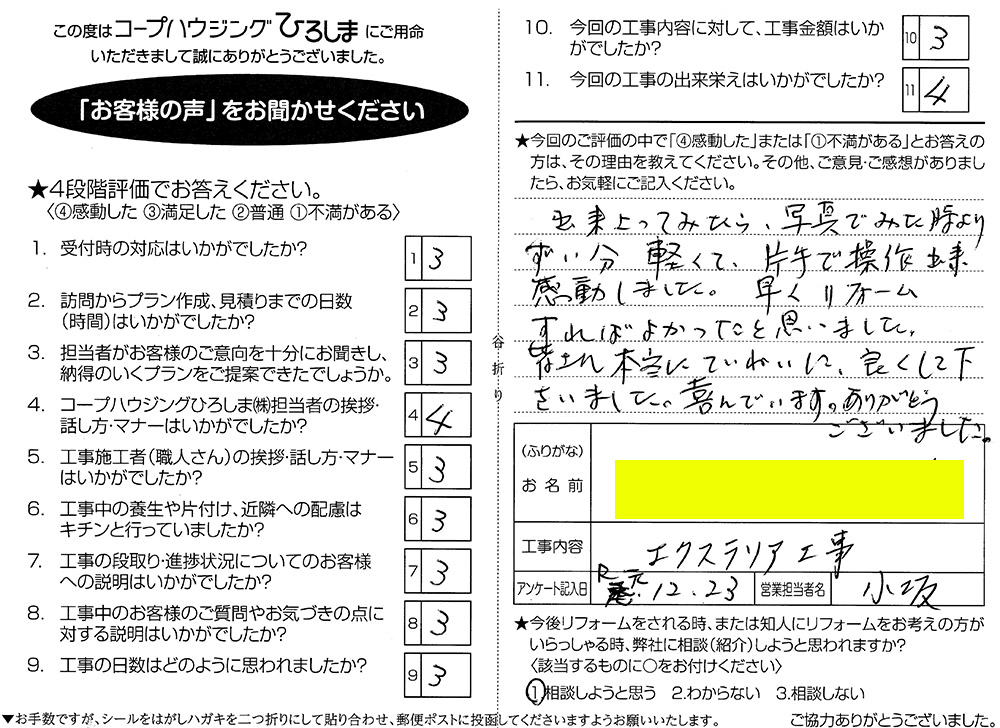 この度はコープハウジングひろしまにご用命
いただきまして誠にありがとうございました。
「お客様の声」をお聞かせください
★4段階評価でお答えください。
〈④感動した ③満足した ②普通 ①不満がある〉
1. 受付時の対応はいかがでしたか?
1 3
2. 訪問からプラン作成、見積りまでの日数
(時間)はいかがでしたか?
2 3
3. 担当者がお客様のご意向を十分にお聞きし、
納得のいくプランをご提案できたでしょうか。
3 3
4. コープハウジングひろしま㈱担当者の挨拶・
話し方・マナーはいかがでしたか?
4 4
5. 工事施工者(職人さん)の挨拶・話し方・マナー
はいかがでしたか?
5 3
6. 工事中の養生や片付け、近隣への配慮は
キチンと行っていましたか?
6 3
7. 工事の段取り・進捗状況についてのお客様
への説明はいかがでしたか?
7 3
8. 工事中のお客様のご質問やお気づきの点に
対する説明はいかがでしたか?
8 3
9. 工事の日数はどのように思われましたか?
9 3
▼お手数ですが、シールをはがしハガキを二つ折りにして貼り合わせ、郵便ポストに投函してくださいますようお願いいたします。
谷折り
10. 今回の工事内容に対して、工事金額はいか
がでしたか?
10 3
11. 今回の工事の出来栄えはいかがでしたか?
11 4
★今回のご評価の中で「④感動した」または「①不満がある」とお答えの
方は、その理由を教えてください。その他、ご意見・ご感想がありまし
たら、お気軽にご記入ください。
出来上ってみたら、写真でみた時より
ずい分 軽くて、片手で操作出来
感動しました。 早くリフォーム
すればよかったと思いました。
本当にていねいに、良くして下
さいました。喜んでいます。ありがとう
ございました。
(ふりがな)
お名前
工事内容
エクステリア工事
アンケート記入日
R元.12.23
営業担当者名
小坂
★今後リフォームをされる時、または知人にリフォームをお考えの方が
いらっしゃる時、弊社に相談(紹介)しようと思われますか?
〈該当するものに○をお付けください〉
1.相談しようと思う 2.わからない 3.相談しない
ご協力ありがとうございました。